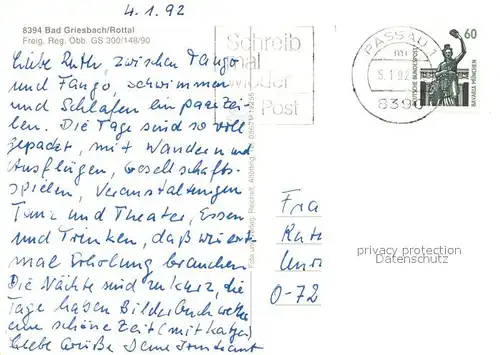 4.1.92
8394 Bad Griesbach/Rottal
Freig. Reg. Obb. GS 300/148/90
Liebe Ruth, zwischen Tango
und Fango, schwimmen
und Schlafen ein paar Zei-
len. Die Tage sind so voll
gepackt, mit Wandern und
Ausflügen, Gesellschafts-
spielen, Veranstaltungen
Tanz und Theater, Essen
und Trinken, daß wir erst
mal Erholung brauchen
Die Nächte sind zu kurz, die
Tage haben Bilderbuchwetter
eine schöne Zeit (mit Katzen)
Liebe Grüße Deine
Schreib
mal
wieder
Post
PASSAU 1
mu
5.1.92
8390
60
DEUTSCHE BUNDESPOST
BAVARIA MÜNCHEN
Fra
Rut
0-72
privacy protection
Datenschutz